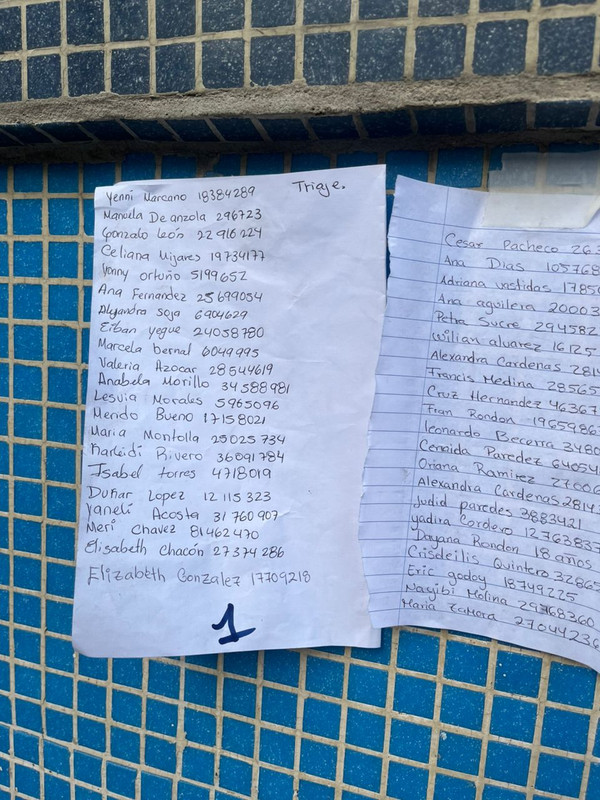 Triaje.
Yenni Marcano 18384289
Manuela De anzola 296723
Gonzalo León 22 916 224
Celiana Mijares 19734177
Yonny ortuño 5199652
Ana Fernandez 25699054
Alejandra soja 6904629
Eiban yegue 24058780
Marcela bernal 6049995
Valeria Azocar 28544619
Anabela Morillo 34588981
Lesvia Morales 5965096
Mendo Bueno 17158021
Maria Montolla 25025734
Karleidi Rivero 36091784
Isabel torres 4718019
Duñar Lopez 12115323
Yaneli Acosta 31 760 907
Meri Chavez 81462470
Elisabeth Chacón 27374286
Elizabeth Gonzalez 17709218
1
Cesar Pacheco 263
Ana Dias 105768
Adriana vastidas 1785
Ana aguilera 20003
Petra Sucre 2945827
wilian alvarez 16125
Alexandra Cardenas 2814
Francis Medina 28565
Cruz Hernandez 46367
Fran Rondon 1965986
leonardo Becerra 3480
Cenaida Paredez 64054
Oriana Ramirez 27006
Alexandra Cardenas 2814
Judid paredes 3883421
yadira Cordero 12763837
Dayana Rondon 18 años
Crisdeilis Quintero 32865
Eric godoy 18749225
Nayibi Molina 29768360
Maria Zamora 27044236